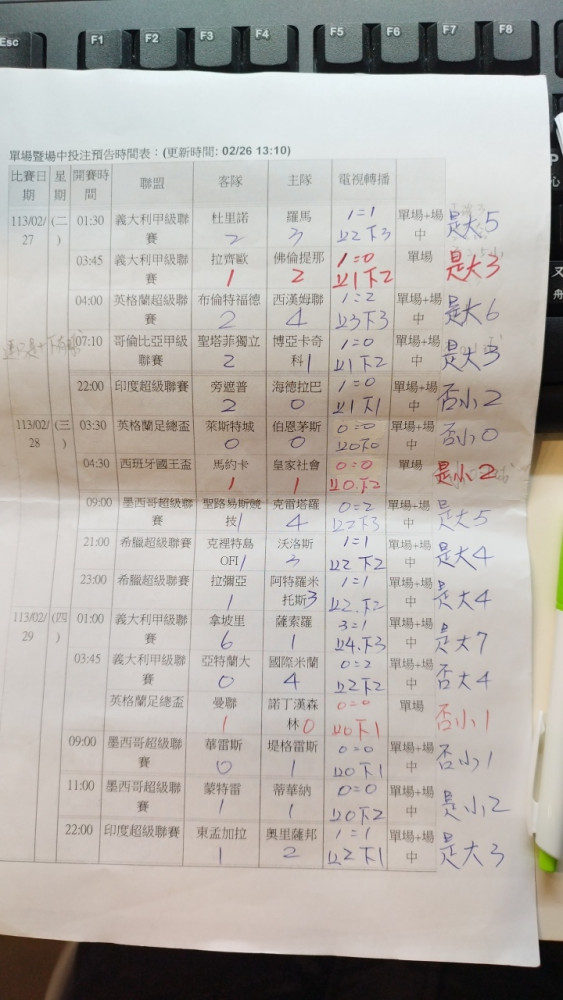 Esc F1 F2 F3 F4 F5 F6 F7 F8
單場暨場中投注預告時間表：(更新時間: 02/26 13:10)
比賽日期 星期 開賽時間 聯盟 客隊 主隊 電視轉播
113/02/27 (二) 01:30 義大利甲級聯賽 杜里諾 2 羅馬 3 1=1 上2下3 單場+場中 是大5
03:45 義大利甲級聯賽 拉齊歐 1 佛倫提那 2 1=0 上1下2 單場 是大3
04:00 英格蘭超級聯賽 布倫特福德 2 西漢姆聯 4 1=2 上3下3 單場+場中 是大6
07:10 哥倫比亞甲級聯賽 聖塔菲獨立 2 博亞卡奇科 1 1=0 上1下2 單場+場中 是大3
22:00 印度超級聯賽 旁遮普 2 海德拉巴 0 1=0 上1下1 單場+場中 否小2
113/02/28 (三) 03:30 英格蘭足總盃 萊斯特城 0 伯恩茅斯 0 0=0 上0下0 單場+場中 否小0
04:30 西班牙國王盃 馬約卡 1 皇家社會 1 0=0 上0下2 單場 是小2
09:00 墨西哥超級聯賽 聖路易斯競技 1 克雷塔羅 4 0=2 上2下3 單場+場中 是大5
21:00 希臘超級聯賽 克裡特島OFI 1 沃洛斯 3 1=1 上2下2 單場+場中 是大4
23:00 希臘超級聯賽 拉彌亞 1 阿特羅米托斯 3 1=1 上2下2 單場+場中 是大4
113/02/29 (四) 01:00 義大利甲級聯賽 拿坡里 6 薩索羅 1 3=1 上4下3 單場+場中 是大7
03:45 義大利甲級聯賽 亞特蘭大 0 國際米蘭 4 0=2 上2下2 單場+場中 否大4
英格蘭足總盃 曼聯 1 諾丁漢森林 0 0=0 上0下1 單場 否小1
09:00 墨西哥超級聯賽 華雷斯 0 堤格雷斯 1 0=0 上0下1 單場+場中 否小1
11:00 墨西哥超級聯賽 蒙特雷 1 蒂華納 1 0=0 上0下2 單場+場中 是小2
22:00 印度超級聯賽 東孟加拉 1 奧里薩邦 2 1=1 上2下1 單場+場中 是大3